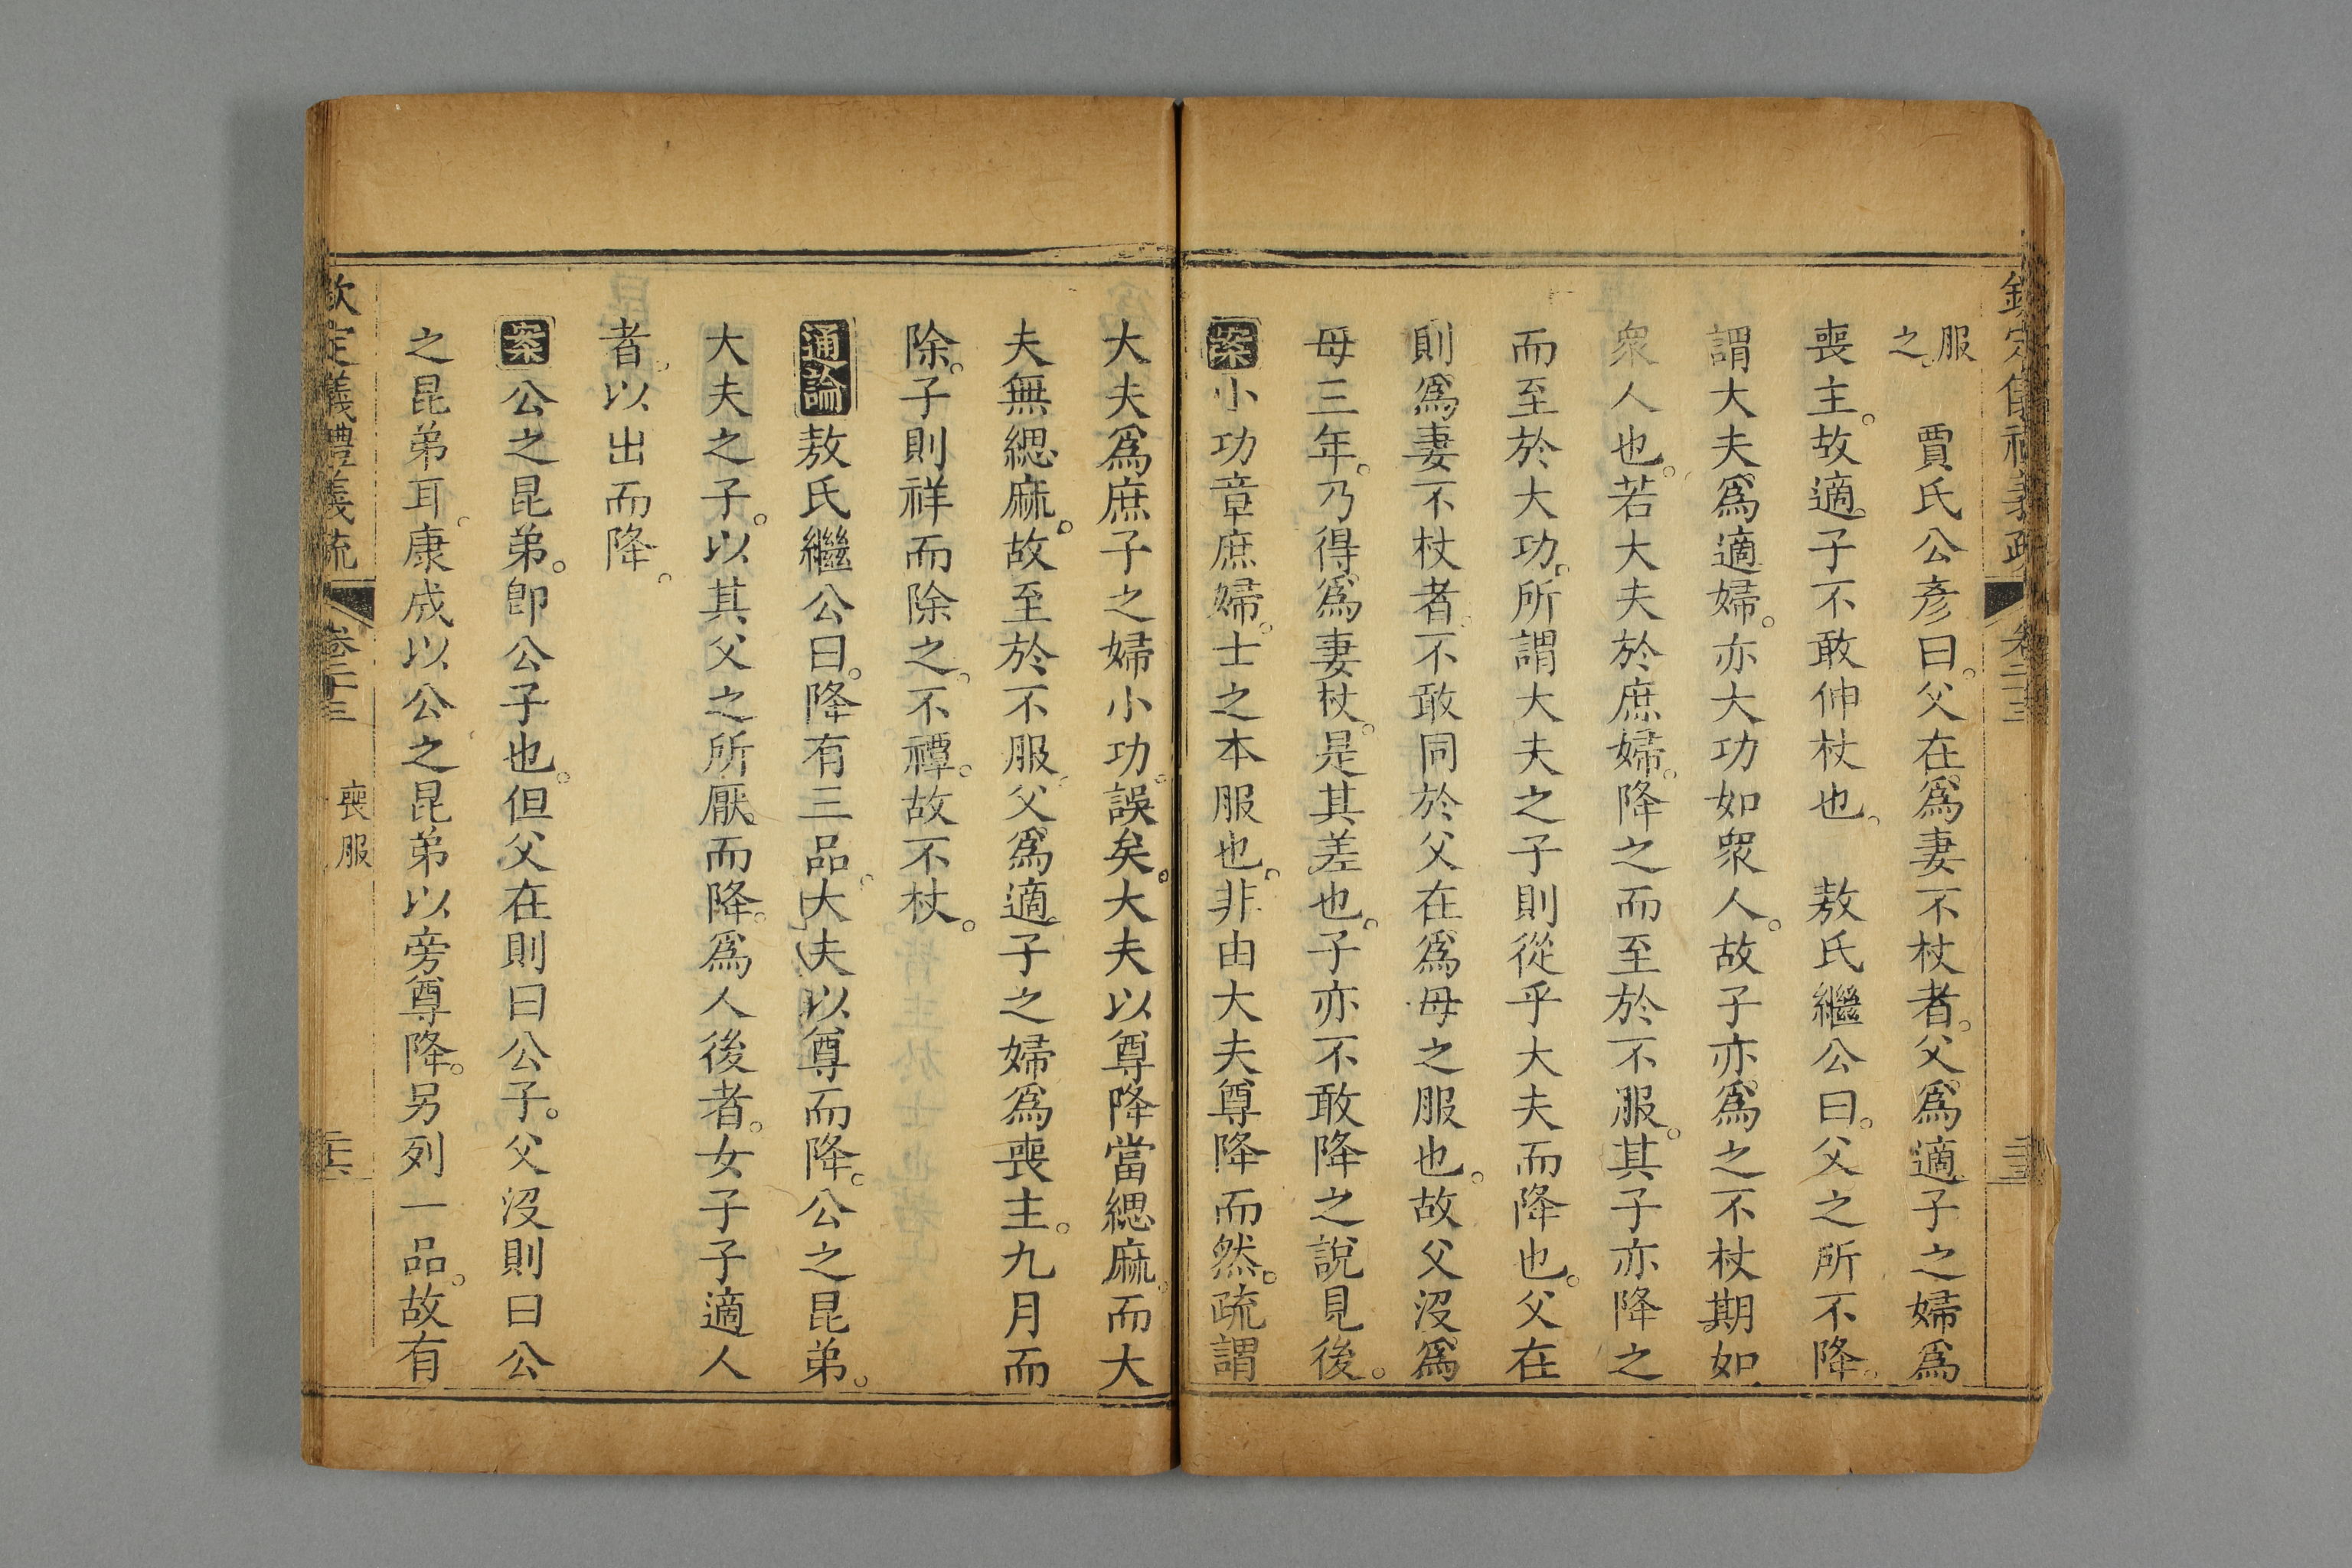 欽定儀禮義疏 卷二十三
服之。賈氏公彥曰。父在爲妻不杖者。父爲適子之婦爲
喪主。故適子不敢伸杖也。敖氏繼公曰。父之所不降。
謂大夫爲適婦。亦大功如衆人。故子亦爲之不杖期如
衆人也。若大夫於庶婦。降之而至於不服。其子亦降之
而至於大功。所謂大夫之子則從乎大夫而降也。父在
則爲妻不杖者。不敢同於父在爲母之服也。故父沒爲
母三年。乃得爲妻杖。是其差也。子亦不敢降之說見後。
案小功章庶婦。士之本服也。非由大夫尊降而然。疏謂
大夫爲庶子之婦小功。誤矣。大夫以尊降當緦麻。而大
夫無緦麻。故至於不服。父爲適子之婦爲喪主。九月而
除。子則祥而除之。不禫。故不杖。
通論敖氏繼公曰。降有三品。大夫以尊而降。公之昆弟。
大夫之子。以其父之所厭而降。爲人後者。女子子適人
者。以出而降。
案公之昆弟。卽公子也。但父在則曰公子。父沒則曰公
之昆弟耳。康成以公之昆弟以旁尊降。另列一品。故有
欽定儀禮義疏 卷二十三 喪服 二十六